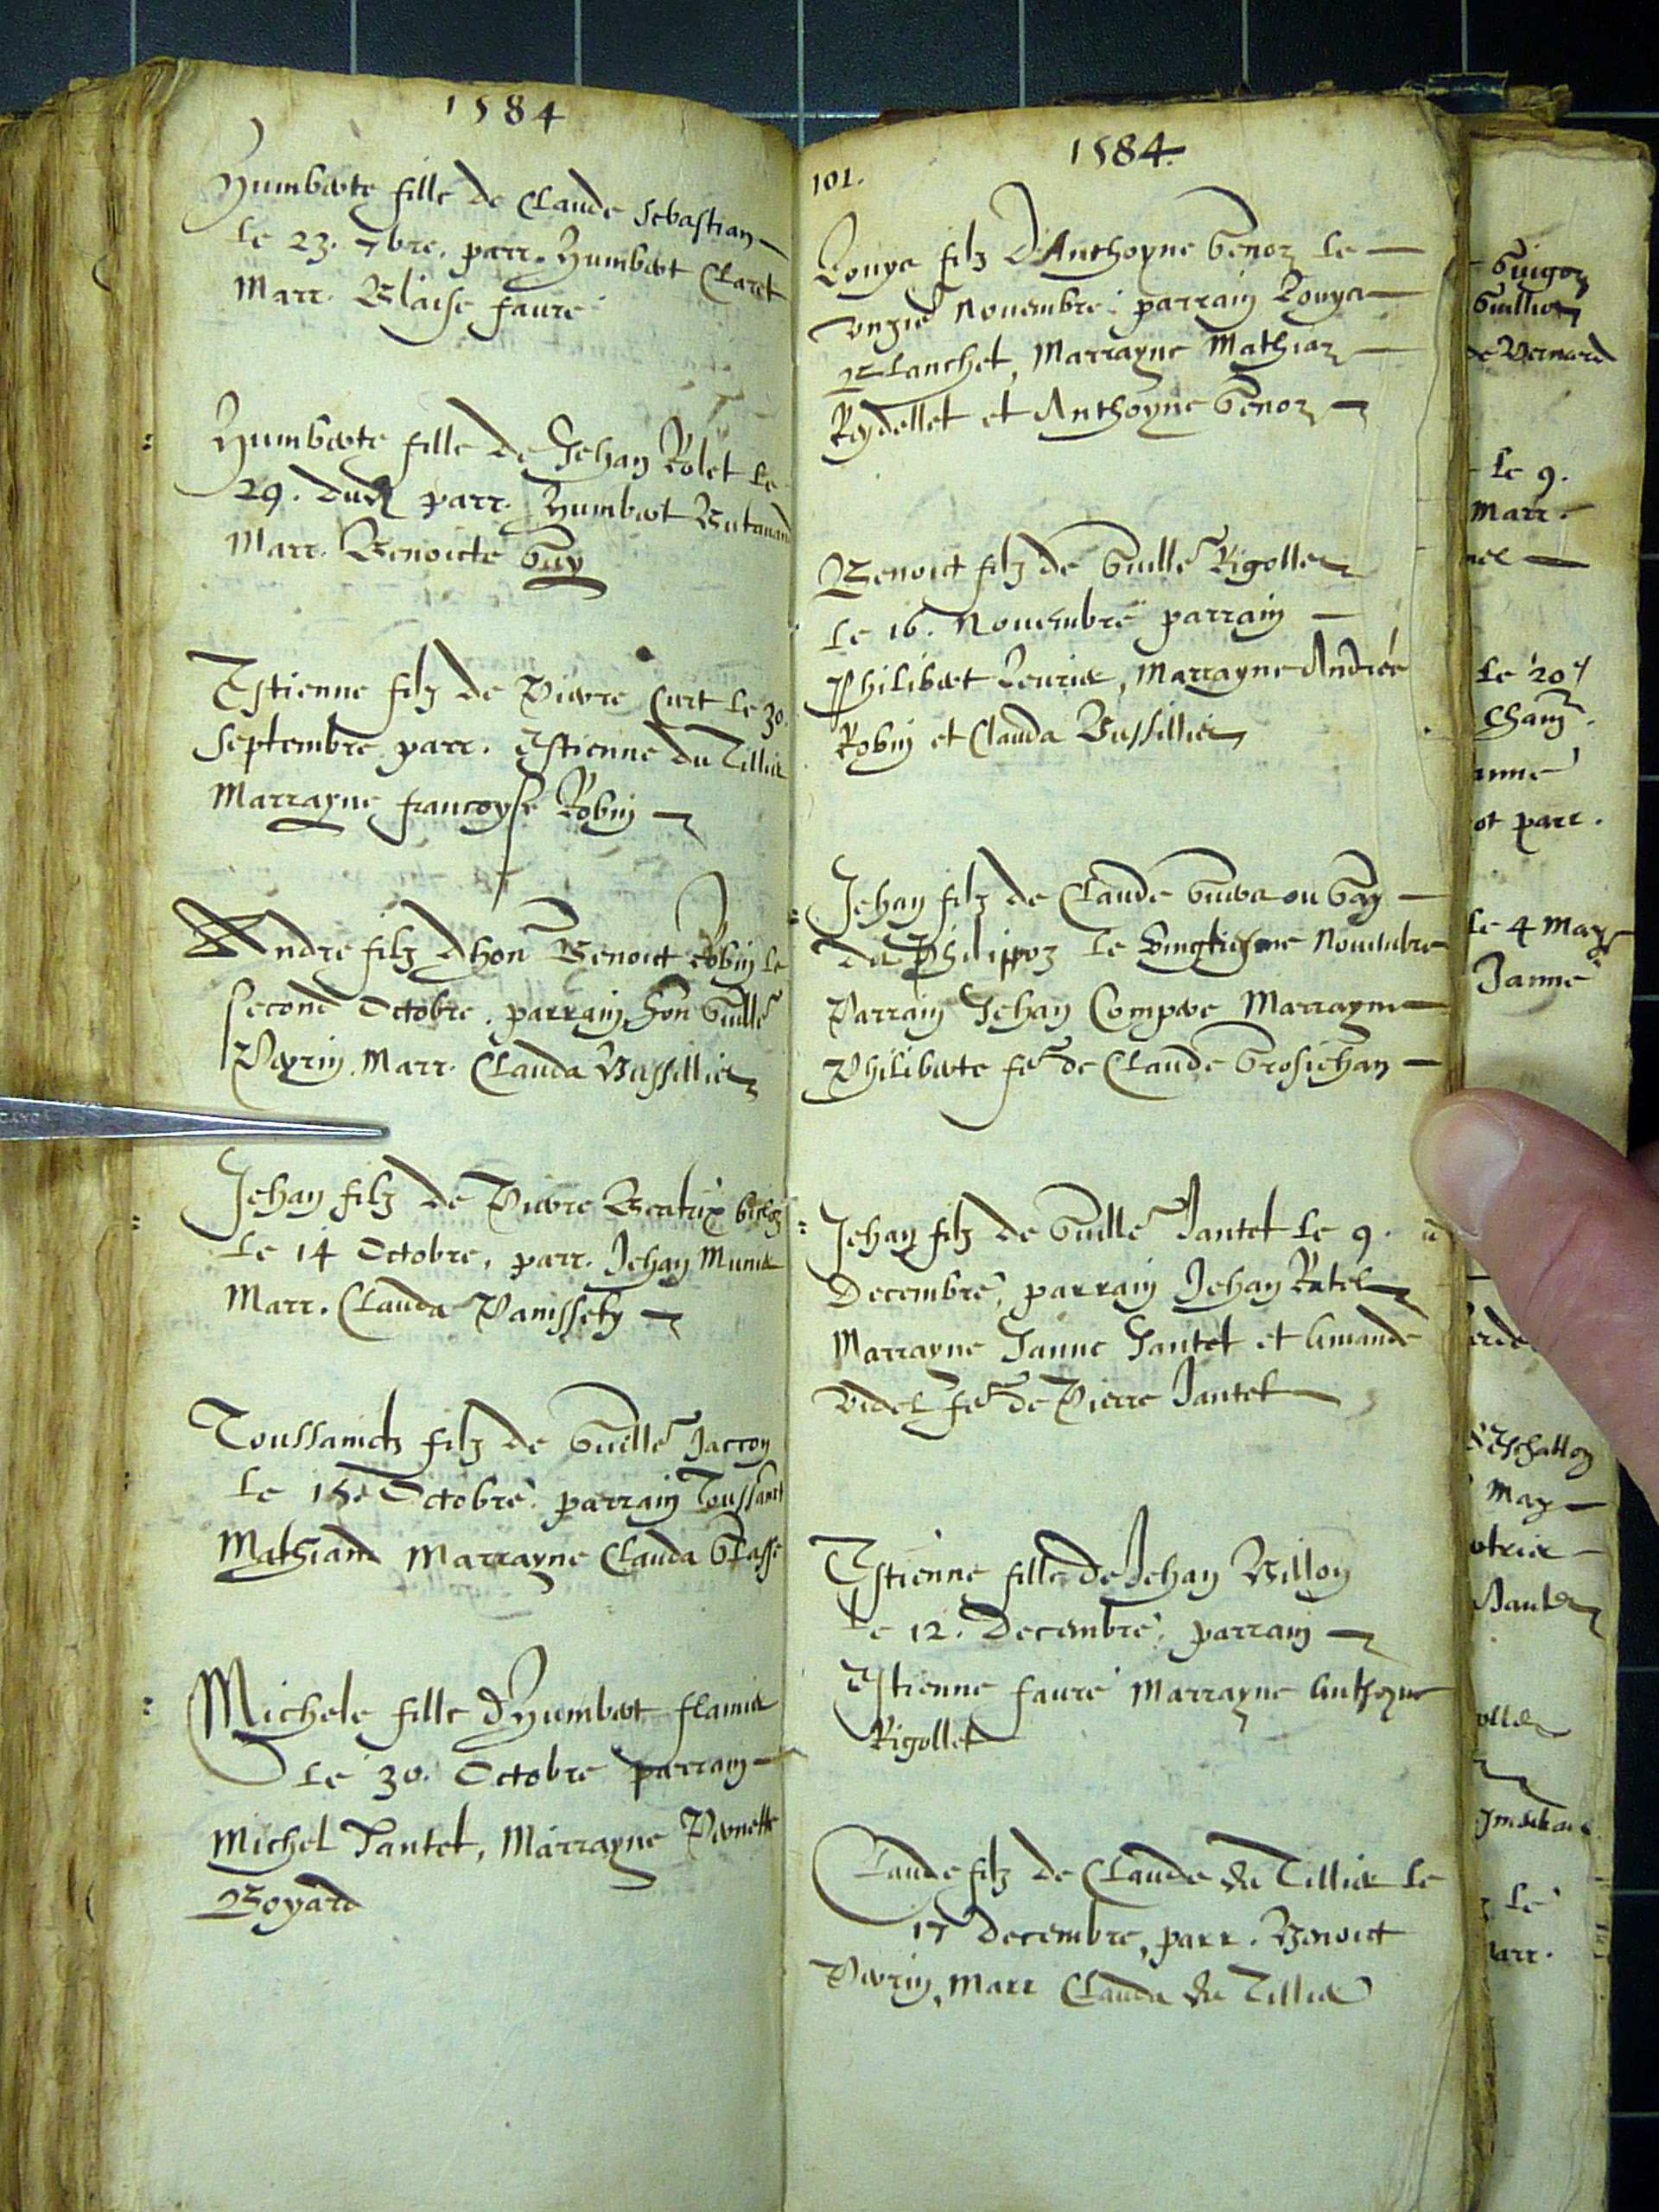 1584
Humberte fille de Claude Sebastian
le 23. 7bre. parr. Humbert Claret
Marr. Blaise faure
Humberte fille de Jehan Rolet le
29. dud parr. Humbert
Marr. Benoicte Guy
Estienne filz de Pierre Curt le 30.
Septembre parr. Estienne du Tillier
Marrayne francoyse Robin
Andre filz dhon Benoict Robin le
second Octobre. parrain hon Guille
Perrin. Marr. Clauda Bussillier
Jehan filz de Pierre Beatrix
le 14 Octobre, parr. Jehan Munier
Marr. Clauda Panissety
Toussainctz filz de Guille Jacron
le 15e Octobre. parrain Toussainct
Mathiand Marrayne Clauda Grasse
Michele fille dHumbert flamier
le 30. Octobre parrain
Michel Jantet, Marrayne Pernette
Boyard
1584.
101.
Louys filz d'Anthoyne Genoz le
unzie Nouembre. parrain Louys
Blanchet, Marrayne Mathiaz
Reydellet et Anthoyne Genoz
Benoict filz de Guille Rigollet
le 16. Nouembre parrain
Philibert Leurier, Marrayne Andrée
Robin et Clauda Bussillier
Jehan filz de Claude ou Gay
de Philippoz le Vingtiesme Nouembre
Parrain Jehan Compere Marrayne
Philiberte fe de Claude Grosjehan
Jehan filz de Guille Jantet le 9.
Decembre, parrain Jehan Ratel
Marrayne Janne Jantet et Amande
Vedel fe de Pierre Jantet
Estienne fille de Jehan Billon
le 12. Decembre. parrain
Estienne faure Marrayne Anthoyne
Rigollet
Claude filz de Claude du Tillier le
17 decembre, parr. Benoict
Perrin, Marr Clauda du Tillier
le 9.
Marr.
le 20
parr.
le 4 May
Janne
May
le